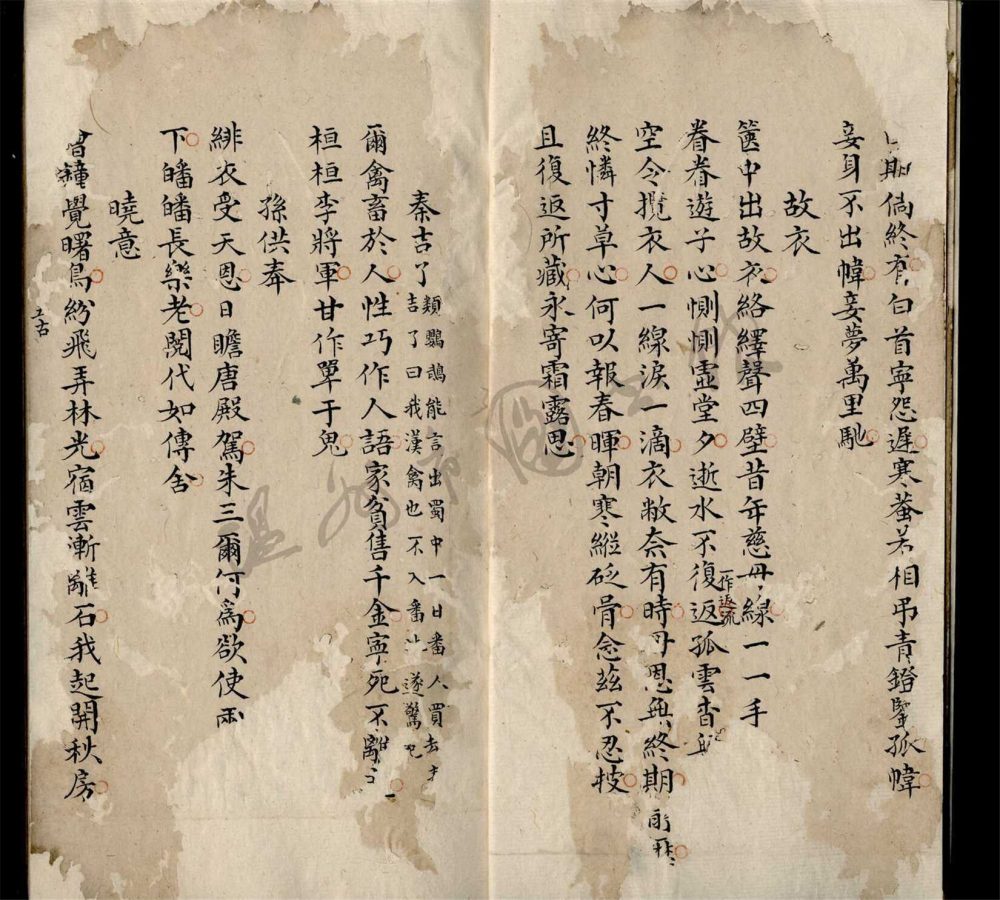 期倘終有白首寧怨遲寒蛬若相弔青鐙鑒孤幃
妾身不出幃妾夢萬里馳
故衣
篋中出故衣絡繹聲四壁昔年慈母線一一手
眷眷遊子心惻惻靈堂夕逝水不復返孤雲杳
一作返流
空令攬衣人一線淚一滴衣敝奈有時母恩無終期
終憐寸草心何以報春暉朝寒縱砭骨念茲不忍披
且復返所藏永寄霜露思
秦吉了
類鸚鵡能言出蜀中一日番人買去
吉了曰我漢禽也不入番遂驚
爾禽畜於人性巧作人語家貧售千金寧死不離
桓桓李將軍甘作單于鬼
孫供奉
緋衣受天恩日瞻唐殿駕朱三爾何為欲使
下皤皤長樂老閱代如傳舍
曉意
鐘覺曙鳥紛飛弄林光宿雲漸離石我起開秋房